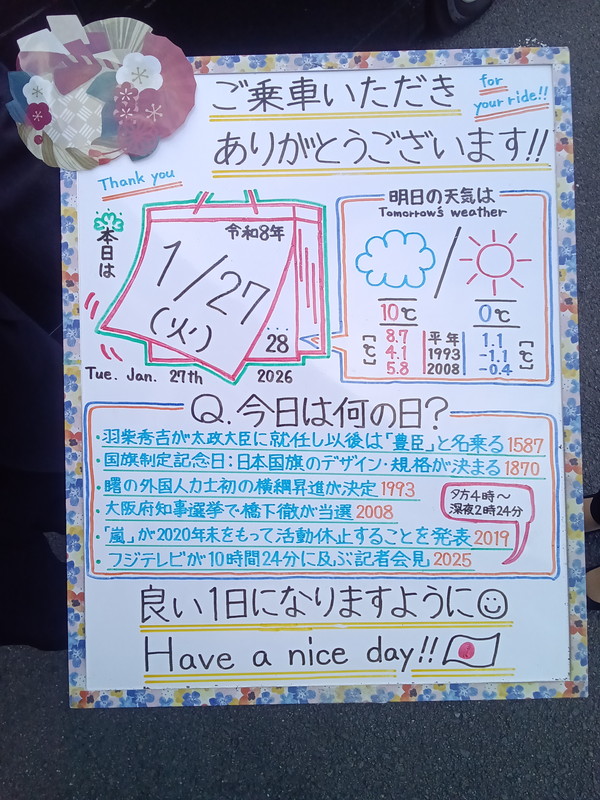 ご乗車いただき
for
your ride!!
ありがとうございます!!
Thank you
本日は
令和8年
1/27
(火)
28
Tue. Jan. 27th 2026
明日の天気は
Tomorrow's weather
10℃ 0℃
[℃] 8.7 平年 1.1 [℃]
4.1 1993 -1.1
5.8 2008 -0.4
Q.今日は何の日?
・羽柴秀吉が太政大臣に就任し以後は「豊臣」と名乗る 1587
・国旗制定記念日:日本国旗のデザイン・規格が決まる 1870
・曙の外国人力士初の横綱昇進が決定 1993
・大阪府知事選挙で橋下徹が当選 2008
・「嵐」が2020年末をもって活動休止することを発表 2019
・フジテレビが10時間24分に及ぶ記者会見 2025
夕方4時〜
深夜2時24分
良い1日になりますように☺
Have a nice day!!